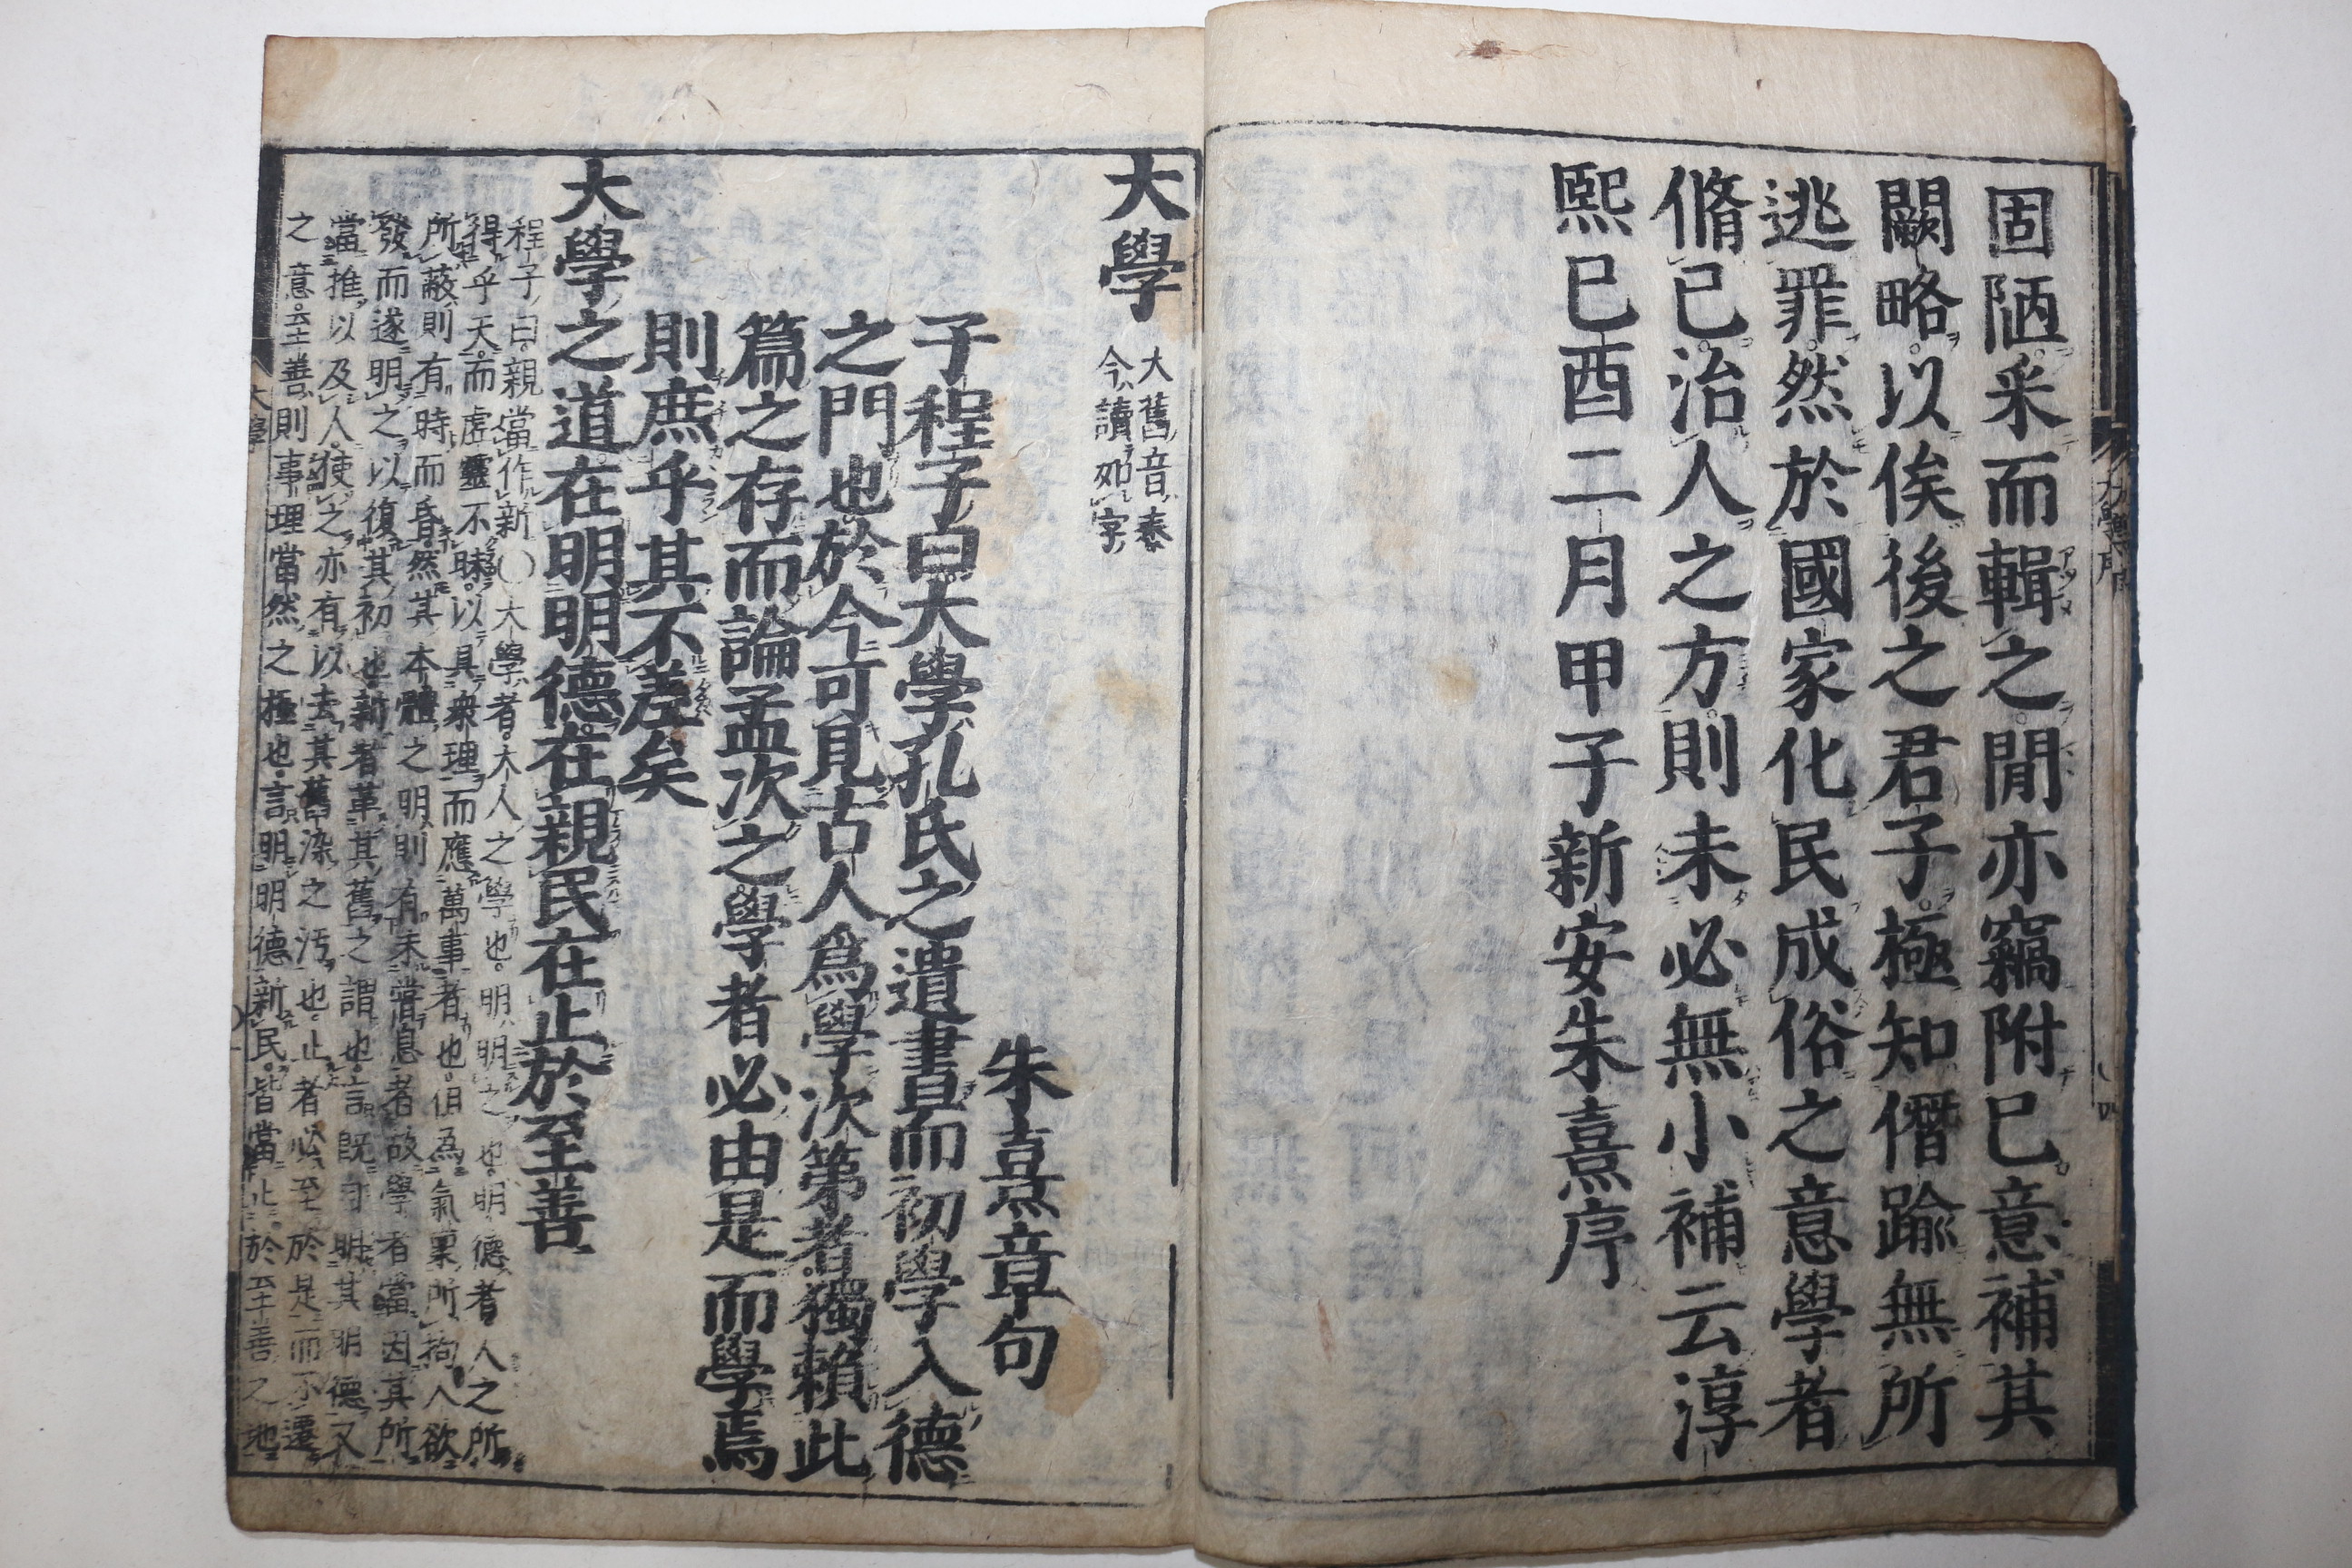 固陋釆而輯之閒亦竊附己意補其
闕略以俟後之君子極知僭踰無所
逃罪然於國家化民成俗之意學者
脩己治人之方則未必無小補云淳
熙己酉二月甲子新安朱熹序
大學
大舊音泰
今讀如字
朱熹章句
子程子曰大學孔氏之遺書而初學入德
之門也於今可見古人爲學次第者獨賴此
篇之存而論孟次之學者必由是而學焉
則庶乎其不差矣
大學之道在明明德在親民在止於至善
程子曰親當作新○大學者大人之學也明明之也明德者人之所
得乎天而虛靈不昧以具衆理而應萬事者也但爲氣稟所拘人欲
所蔽則有時而昏然其本體之明則有未嘗息者故學者當因其所
發而遂明之以復其初也新者革其舊之謂也言旣自明其明德又
當推以及人使之亦有以去其舊染之汚也止者必至於是而不遷
之意至善則事理當然之極也言明明德新民皆當止於至善之地
大學
大學序
四